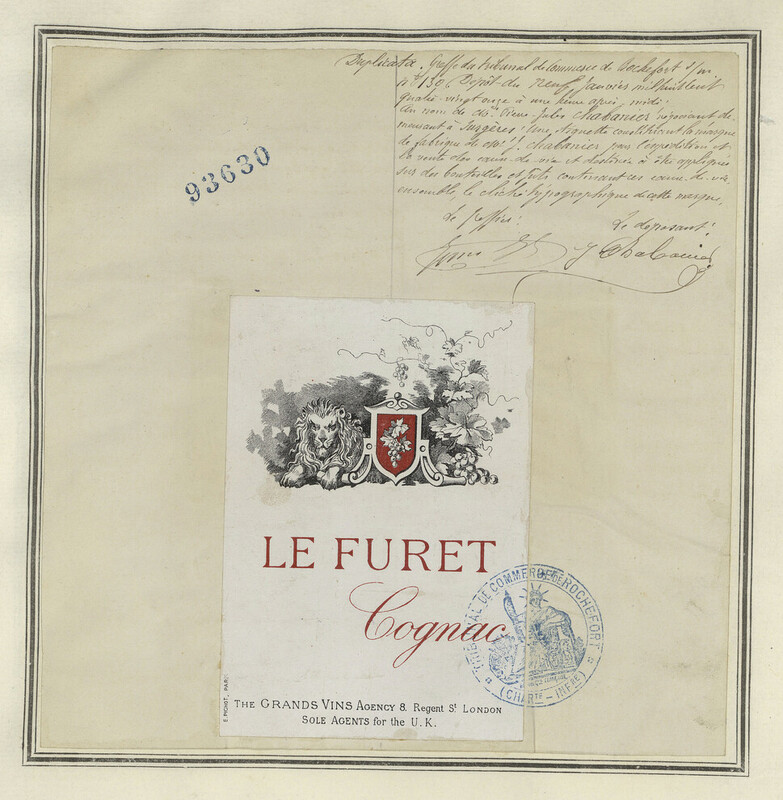 Duplicata. Greffe du tribunal de Commerce de Rochefort s/m
n° 1306 Dépôt du Neuf janvier mil huit cent
quatre-vingt onze à une heure après midi.
au nom de Mr. Pierre Jules Chabanier négociant de-
meurant à Surgères: Une étiquette constituant la marque
de fabrique de Mr. Chabanier pour l'expédition et
la vente des eaux-de-vie et destinée à être appliquée
sur des bouteilles et fûts contenant ces eaux-de-vie
ensemble, le cliché typographique de cette marque,
Le greffier: Le déposant:
J Chabanier
93630
LE FURET
Cognac
TRIBUNAL DE COMMERCE DE ROCHEFORT
(CHARTE-INFRE)
E. PICHOT, PARIS
THE GRANDS VINS AGENCY 8. Regent St LONDON
SOLE AGENTS for the U.K.